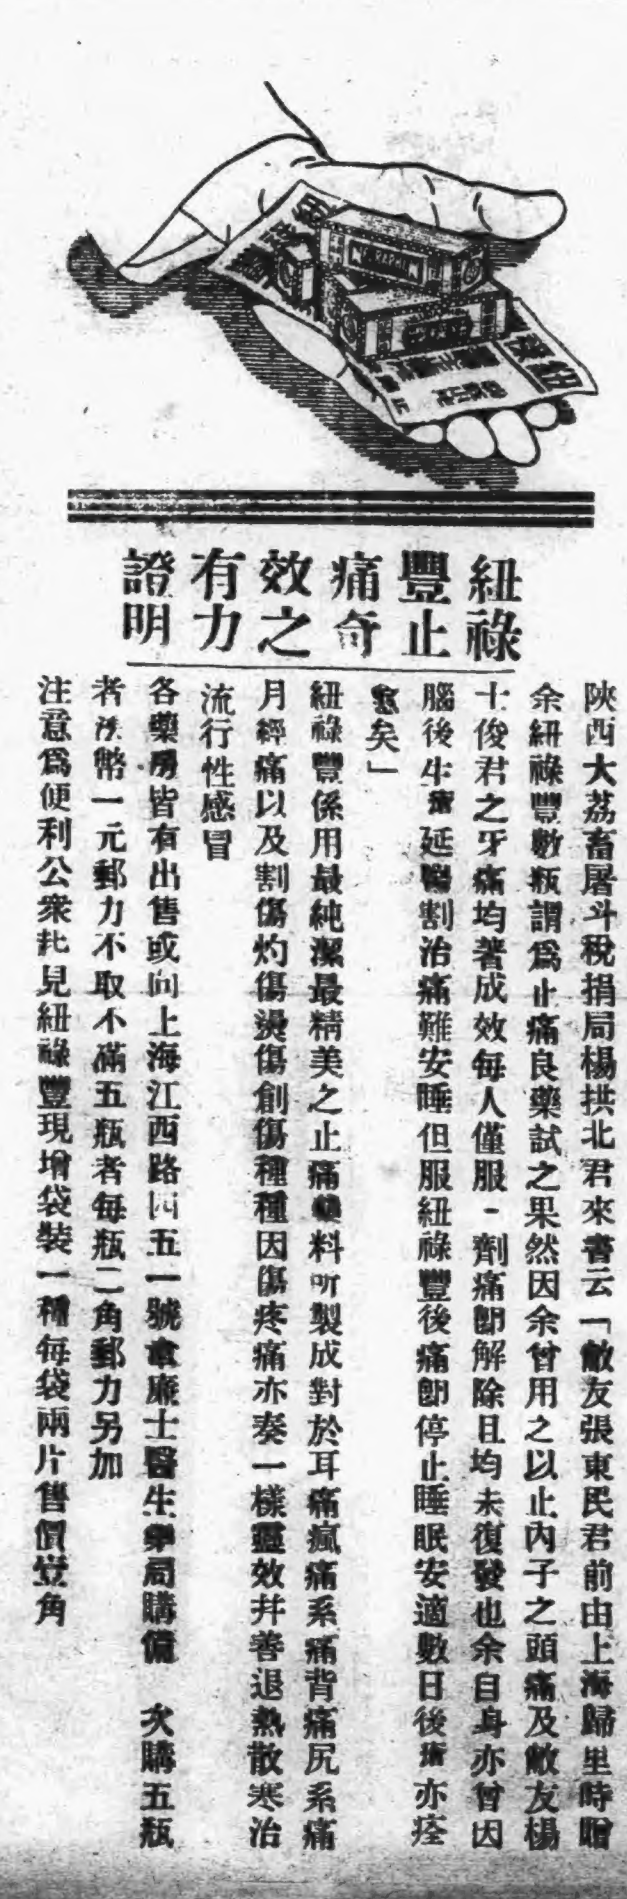 紐祿豐止痛奇效之有力證明
陝西大荔畜屠斗稅捐局楊拱北君來書云「敝友張東民君前由上海歸里時贈
余紐祿豐數瓶謂爲止痛良藥試之果然因余曾用之以止內子之頭痛及敝友楊
士俊君之牙痛均著成效每人僅服一劑痛卽解除且均未復發也余自身亦曾因
腦後生瘡延醫割治痛難安睡但服紐祿豐後痛卽停止睡眠安適數日後瘡亦痊
愈矣」
紐祿豐係用最純潔最精美之止痛藥料所製成對於耳痛瘋痛系痛背痛尻系痛
月經痛以及割傷灼傷燙傷創傷種種因傷疼痛亦奏一樣靈效并善退熱散寒治
流行性感冒
各藥房皆有出售或向上海江西路四五一號韋廉士醫生藥局購備 次購五瓶
者洋幣一元郵力不取不滿五瓶者每瓶二角郵力另加
注意爲便利公衆起見紐祿豐現增袋裝一種每袋兩片售價壹角